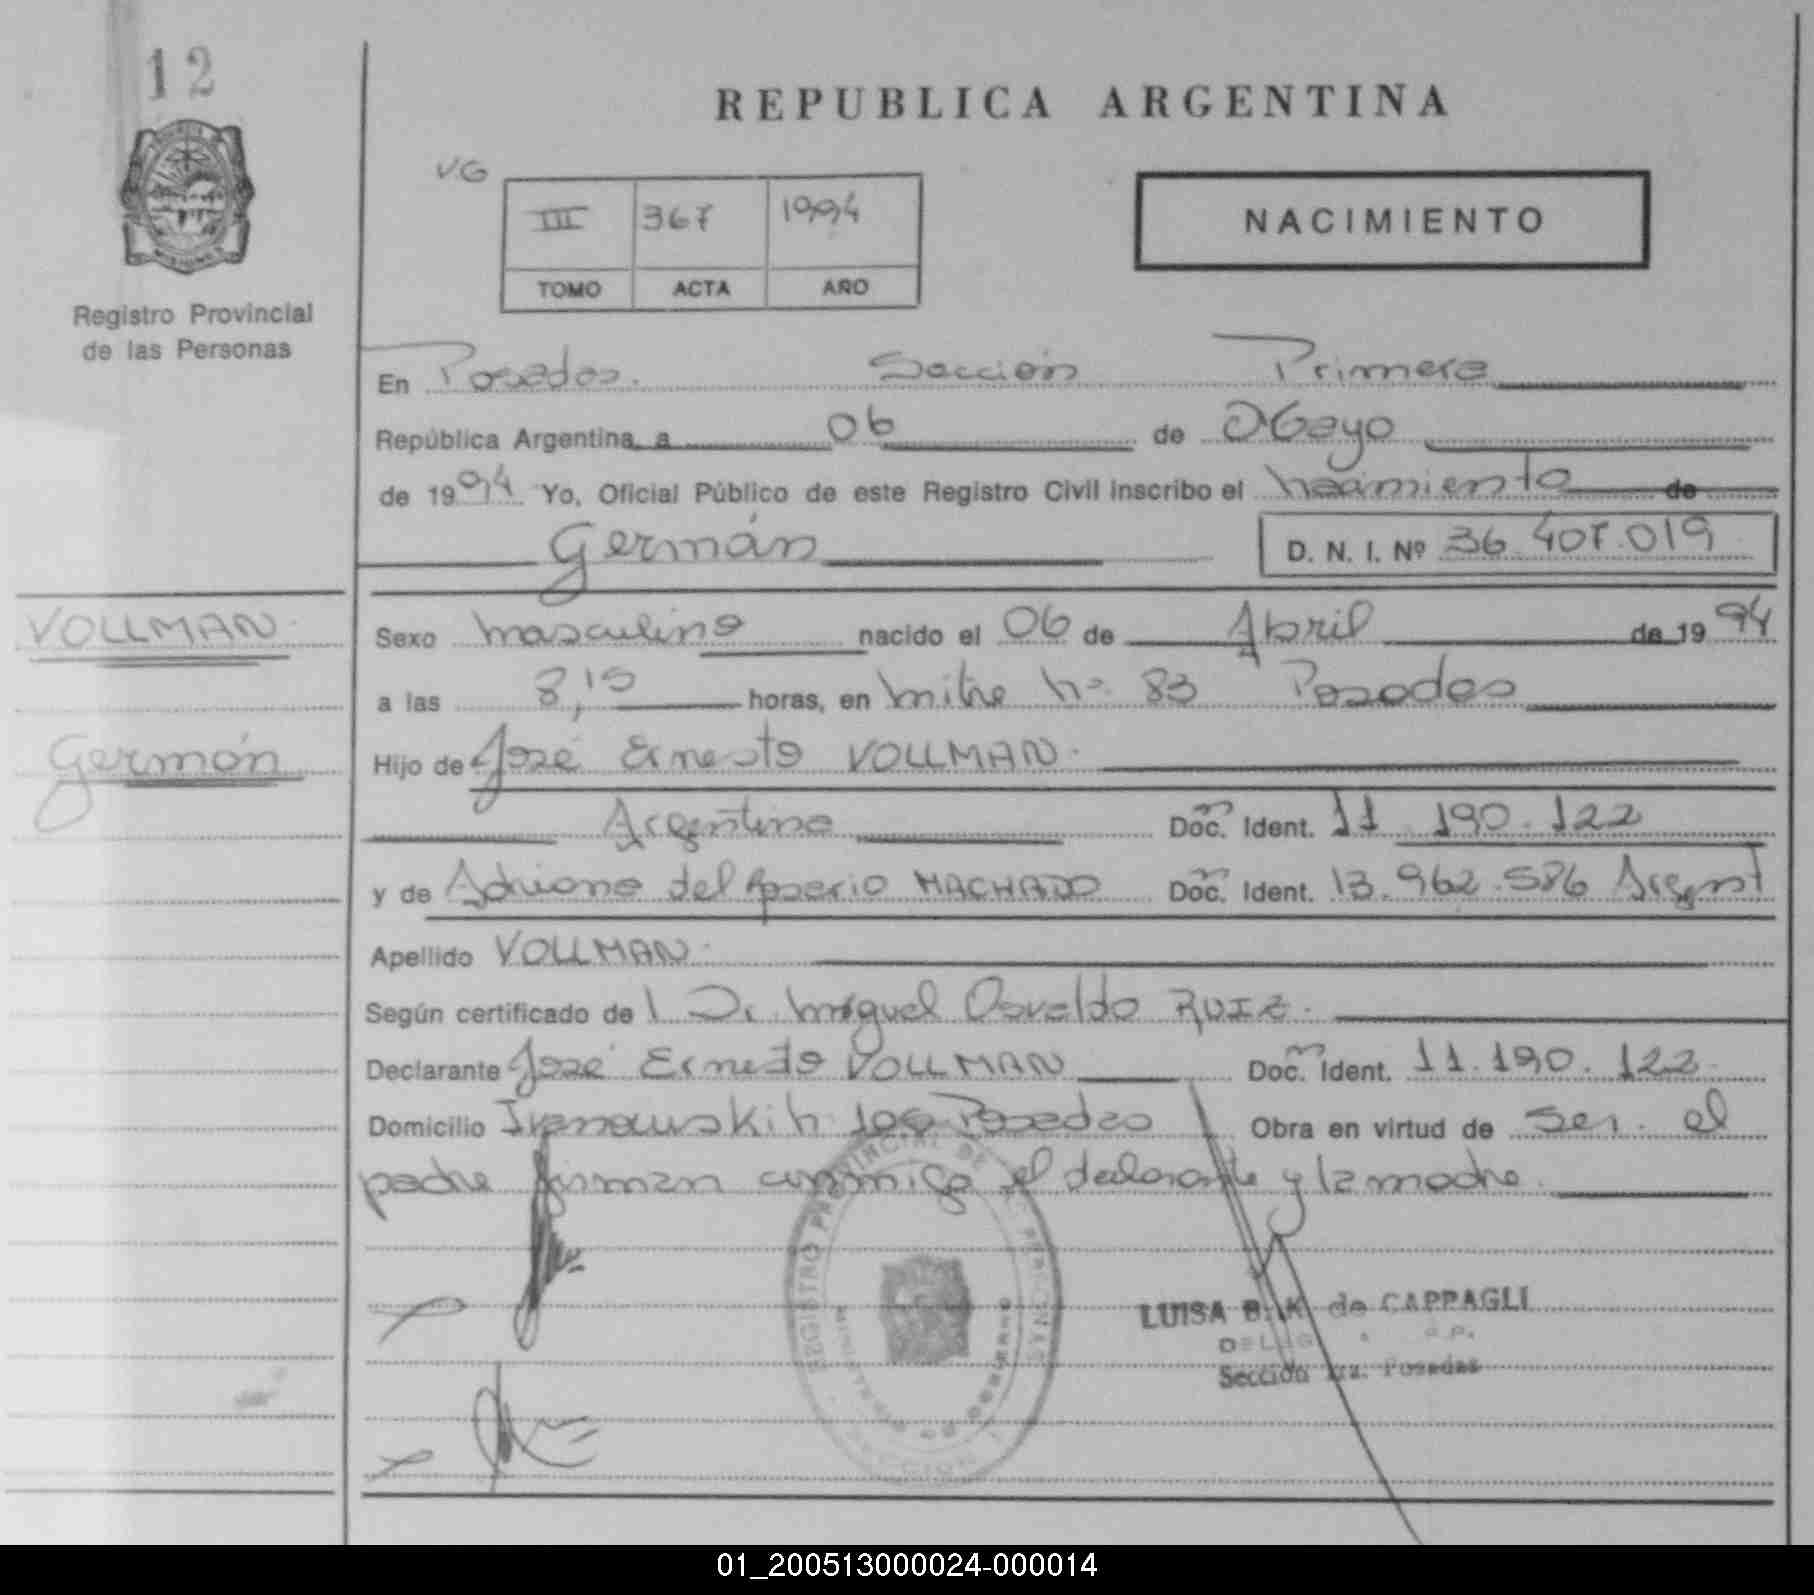 12
REPUBLICA ARGENTINA
V.G
III 367 1994
TOMO ACTA AÑO
NACIMIENTO
Registro Provincial
de las Personas
En Posadas. Sección Primera
República Argentina, a 06 de Mayo
de 1994 Yo, Oficial Público de este Registro Civil inscribo el nacimiento de
Germán D. N. I. Nº 36.407.019
VOLLMAN
Sexo masculino nacido el 06 de Abril de 1994
a las 8,15 horas, en Mitre nº 83 Posadas
Germán
Hijo de José Ernesto VOLLMAN.
Argentino Doc. Ident. 11.190.122
y de Adriana del Rosario MACHADO Doc. Ident. 13.962.586 Argent
Apellido VOLLMAN.
Según certificado de Dr. Miguel Osvaldo RUIZ.
Declarante José Ernesto VOLLMAN Doc. Ident. 11.190.122
Domicilio Posadas Obra en virtud de ser el
padre firman conmigo el declarante y la madre.
REGISTRO PROVINCIAL DE LAS PERSONAS
MINISTERIO DE GOBIERNO
LUISA B. K. de CAPPAGLI
Sección 1ra. Posadas
01_200513000024-000014